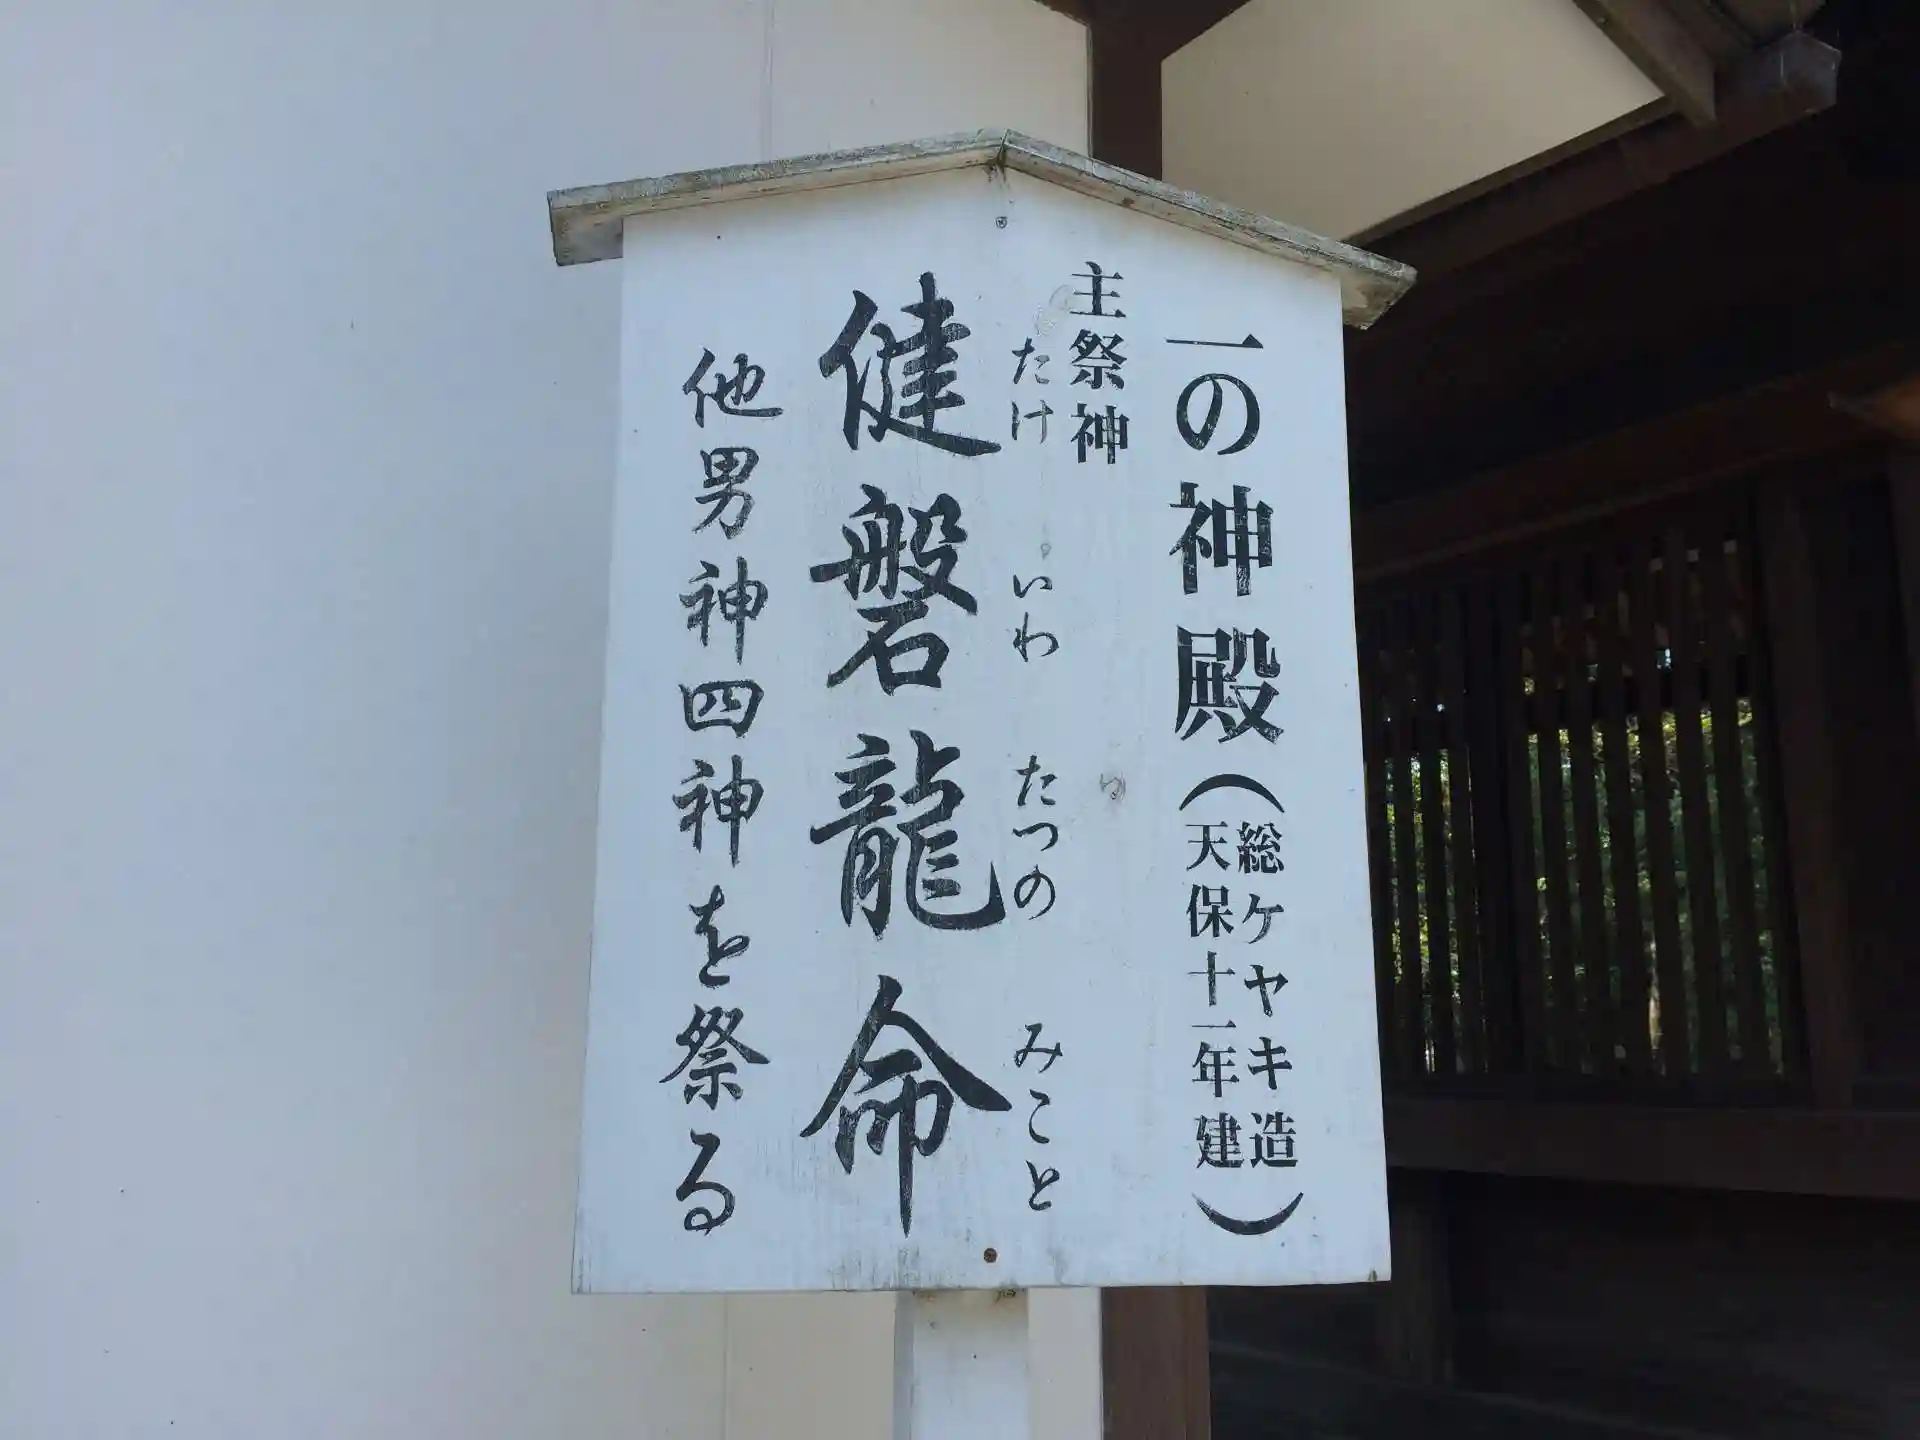 一の神殿（総ケヤキ造
天保十一年建）
主祭神
たけ いわ たつの みこと
健磐龍命
他男神四神を祭る